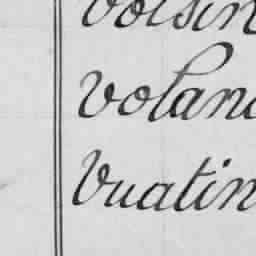 Voisin
Volan
Vuatin